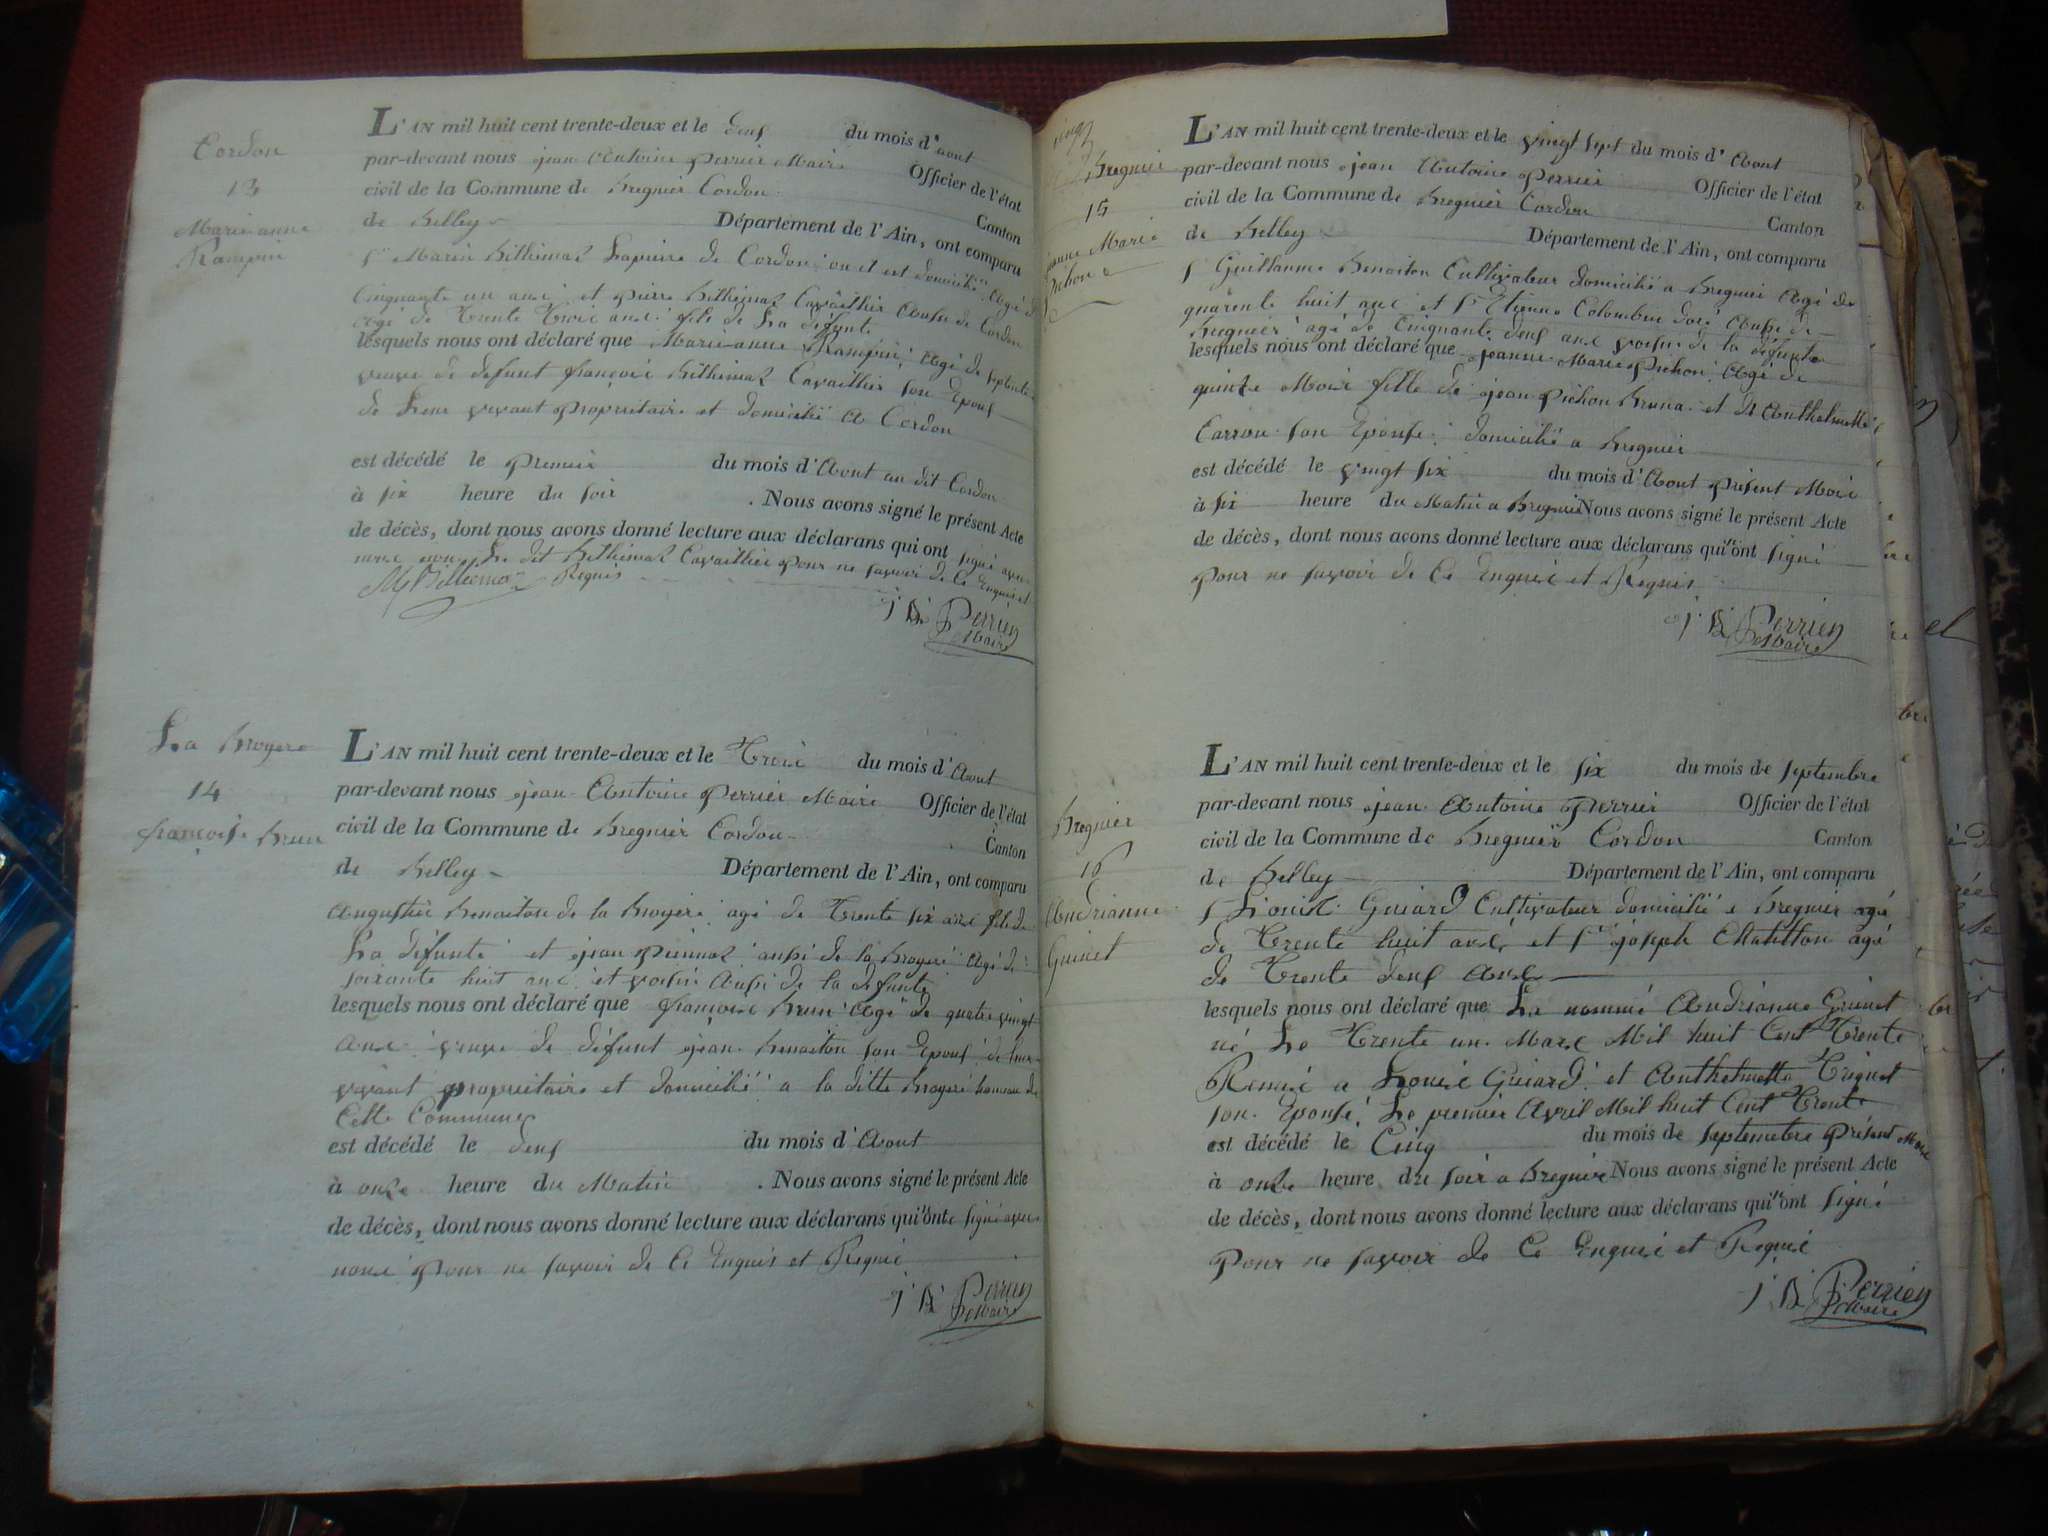 Cordon
13
Marie-anne
Rampin
L'AN mil huit cent trente-deux et le deux du mois d'aout
par-devant nous jean Antoine perrier Maire Officier de l'état
civil de la Commune de Bregnier Cordon Canton
de Belley Département de l'Ain, ont comparu
Sr Marin Billiemaz Lapierre de Cordon ou il est domicilié Agé de
Cinquante un ans et pierre Billiemaz Cavaillier Aussi de Cordon
Agé de Trente Trois ans fils de La défunte
lesquels nous ont déclaré que Marie-anne Rampin Agé de septante
veuve de defunt françois Billiemaz Cavaillier son Epoux
de Leur vivant propriétaire et domicilié A Cordon
est décédé le premier du mois d'Aout au dit Cordon
à six heure du soir . Nous avons signé le présent Acte
de décès, dont nous avons donné lecture aux déclarans qui ont signé avec
nous non Le dit Billiemaz Cavaillier pour ne savoir de Ce Enquis et
Requis
j A Perrier
Maire
La Bruyere
14
françoise Brun
L'AN mil huit cent trente-deux et le Treize du mois d'Aout
par-devant nous jean Antoine perrier Maire Officier de l'état
civil de la Commune de Bregnier Cordon Canton
de Belley Département de l'Ain, ont comparu
Augustin Benoiton de la Bruyere agé de Trente six ans fils de
La défunte et jean aussi de la Bruyere Agé de
soixante huit ans et voisin Aussi de la defunte
lesquels nous ont déclaré que françoise Brun Agé de quatre vingt
Ans veuve de défunt jean Benoiton son Epoux de Leur
vivant propriétaire et domicilié a la ditte Bruyere hameau de
Cette Commune
est décédé le deux du mois d'Aout
à onze heure du Matin . Nous avons signé le présent Acte
de décès, dont nous avons donné lecture aux déclarans qui n'ont signé avec
nous pour ne savoir de Ce Enquis et Requis
j A Perrier
Maire
Bregnier
15
jeanne Marie
Pichon
L'AN mil huit cent trente-deux et le vingt sept du mois d'Aout
par-devant nous jean Antoine perrier Officier de l'état
civil de la Commune de Bregnier Cordon Canton
de Belley Département de l'Ain, ont comparu
Sr Guillaume Benoiton Cultivateur domicilié a Bregnier Agé de
quarente huit ans et Sr Etienne Colombin Aussi de
Bregnier agé de Cinquante deux ans voisin de la défunte
lesquels nous ont déclaré que jeanne Marie Pichon Agé de
quinze Mois fille de jean pichon Bruna et de Anthelmette
Carron son Epouse domicilié a Bregnier
est décédé le vingt six du mois d'Aout présent Mois
à six heure du Matin a Bregnier Nous avons signé le présent Acte
de décès, dont nous avons donné lecture aux déclarans qui n'ont signé
pour ne savoir de Ce Enquis et Requis
j A Perrier
Maire
Bregnier
16
Andrianne
Guinet
L'AN mil huit cent trente-deux et le six du mois de septembre
par-devant nous jean Antoine perrier Officier de l'état
civil de la Commune de Bregnier Cordon Canton
de Belley Département de l'Ain, ont comparu
Sr Louis Guiard Cultivateur domicilié a Bregnier agé
de Trente huit ans et Sr joseph Chatillon agé
de Trente deux Ans
lesquels nous ont déclaré que La nommé Andrianne Guinet
né Le Trente un Mars Mil huit Cent Trente
Remise a Louis Guiard et Anthelmette Trignet
son Epouse Le premier Avril Mil huit Cent Trente
est décédé le Cinq du mois de septembre Présent Mois
à onze heure du soir a Bregnier Nous avons signé le présent Acte
de décès, dont nous avons donné lecture aux déclarans qui n'ont signé
pour ne savoir de Ce Enquis et Requis
j A Perrier
Maire